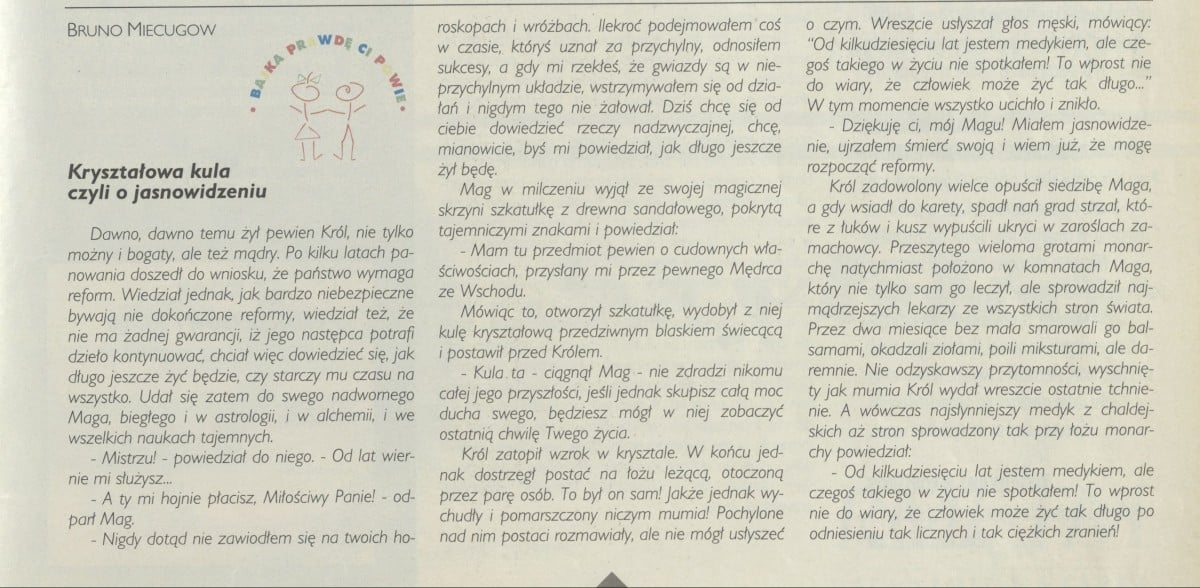 BRUNO MIECUGOW
• BAJKA PRAWDĘ CI POWIE •
Kryształowa kula
czyli o jasnowidzeniu
Dawno, dawno temu żył pewien Król, nie tylko
możny i bogaty, ale też mądry. Po kilku latach pa-
nowania doszedł do wniosku, że państwo wymaga
reform. Wiedział jednak, jak bardzo niebezpieczne
bywają nie dokończone reformy, wiedział też, że
nie ma żadnej gwarancji, iż jego następca potrafi
dzieło kontynuować, chciał więc dowiedzieć się, jak
długo jeszcze żyć będzie, czy starczy mu czasu na
wszystko. Udał się zatem do swego nadwornego
Maga, biegłego i w astrologii, i w alchemii, i we
wszelkich naukach tajemnych.
- Mistrzu! - powiedział do niego. - Od lat wier-
nie mi służysz...
- A ty mi hojnie płacisz, Miłościwy Panie! - od-
parł Mag.
- Nigdy dotąd nie zawiodłem się na twoich ho-
roskopach i wróżbach. Ilekroć podejmowałem coś
w czasie, któryś uznał za przychylny, odnosiłem
sukcesy, a gdy mi rzekłeś, że gwiazdy są w nie-
przychylnym układzie, wstrzymywałem się od dzia-
łań i nigdym tego nie żałował. Dziś chcę się od
ciebie dowiedzieć rzeczy nadzwyczajnej, chcę,
mianowicie, byś mi powiedział, jak długo jeszcze
żył będę.
Mag w milczeniu wyjął ze swojej magicznej
skrzyni szkatułkę z drewna sandałowego, pokrytą
tajemniczymi znakami i powiedział:
- Mam tu przedmiot pewien o cudownych wła-
ściwościach, przysłany mi przez pewnego Mędrca
ze Wschodu.
Mówiąc to, otworzył szkatułkę, wydobył z niej
kulę kryształową przedziwnym blaskiem świecącą
i postawił przed Królem.
- Kula ta - ciągnął Mag - nie zdradzi nikomu
całej jego przyszłości, jeśli jednak skupisz całą moc
ducha swego, będziesz mógł w niej zobaczyć
ostatnią chwilę Twego życia.
Król zatopił wzrok w krysztale. W końcu jed-
nak dostrzegł postać na łożu leżącą, otoczoną
przez parę osób. To był on sam! Jakże jednak wy-
chudły i pomarszczony niczym mumia! Pochylone
nad nim postaci rozmawiały, ale nie mógł usłyszeć
o czym. Wreszcie usłyszał głos męski, mówiący:
"Od kilkudziesięciu lat jestem medykiem, ale cze-
goś takiego w życiu nie spotkałem! To wprost nie
do wiary, że człowiek może żyć tak długo..."
W tym momencie wszystko ucichło i znikło.
- Dziękuję ci, mój Magu! Miałem jasnowidze-
nie, ujrzałem śmierć swoją i wiem już, że mogę
rozpocząć reformy.
Król zadowolony wielce opuścił siedzibę Maga,
a gdy wsiadł do karety, spadł nań grad strzał, któ-
re z łuków i kusz wypuścili ukryci w zaroślach za-
machowcy. Przeszytego wieloma grotami monar-
chę natychmiast położono w komnatach Maga,
który nie tylko sam go leczył, ale sprowadził naj-
mądrzejszych lekarzy ze wszystkich stron świata.
Przez dwa miesiące bez mała smarowali go bal-
samami, okadzali ziołami, poili miksturami, ale da-
remnie. Nie odzyskawszy przytomności, wyschnię-
ty jak mumia Król wydał wreszcie ostatnie tchnie-
nie. A wówczas najsłynniejszy medyk z chaldej-
skich aż stron sprowadzony tak przy łożu monar-
chy powiedział:
- Od kilkudziesięciu lat jestem medykiem, ale
czegoś takiego w życiu nie spotkałem! To wprost
nie do wiary, że człowiek może żyć tak długo po
odniesieniu tak licznych i tak ciężkich zranień!